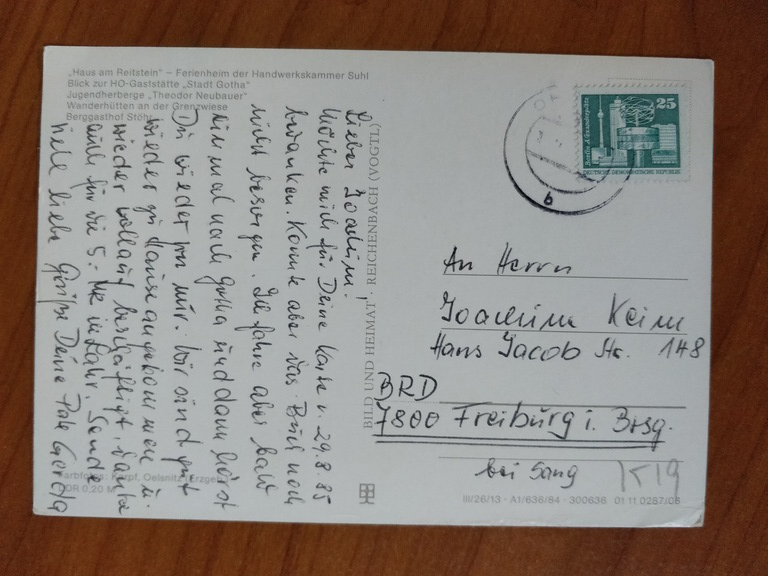 „Haus am Reitstein" – Ferienheim der Handwerkskammer Suhl
Blick zur HO-Gaststätte „Stadt Gotha"
Jugendherberge „Theodor Neubauer"
Wanderhütten an der Grenzwiese
Berggasthof Stöhr
Lieber Joachim!
Möchte mich für Deine Karte v. 29.8.85
bedanken. Konnte aber das Buch noch
nicht besorgen. Ich fahre aber bald
einmal nach Gotha und dann hörst
Du wieder von mir. Wir sind gut
wieder zu Hause angekommen u.
wieder vollauf beschäftigt. Danke
auch für die 5.- in Lahr. Sende
viele liebe Grüße Deine Gerda
BILD UND HEIMAT · REICHENBACH (VOGTL)
25
Berlin, Alexanderplatz
DEUTSCHE DEMOKRATISCHE REPUBLIK
b
An Herrn
Joachim Keim
Hans Jacob Str. 148
BRD
7800 Freiburg i. Brsg.
bei Sang
K19
Oelsnitz/Erzgeb.
DDR 0,20 M
III/26/13 · A1/636/84 · 300636 01 11 0287/08